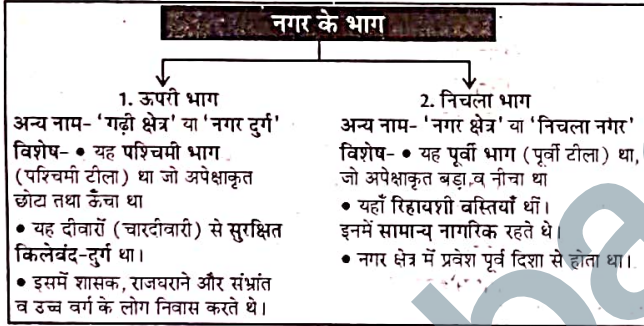 नगर के भाग
1. ऊपरी भाग
अन्य नाम- 'गढ़ी क्षेत्र' या 'नगर दुर्ग'
विशेष- • यह पश्चिमी भाग
(पश्चिमी टीला) था जो अपेक्षाकृत
छोटा तथा ऊँचा था
• यह दीवारों (चारदीवारी) से सुरक्षित
किलेबंद-दुर्ग था।
• इसमें शासक, राजघराने और संभ्रांत
व उच्च वर्ग के लोग निवास करते थे।
2. निचला भाग
अन्य नाम- 'नगर क्षेत्र' या 'निचला नगर'
विशेष- • यह पूर्वी भाग (पूर्वी टीला) था,
जो अपेक्षाकृत बड़ा व नीचा था
• यहाँ रिहायशी बस्तियाँ थीं।
इनमें सामान्य नागरिक रहते थे।
• नगर क्षेत्र में प्रवेश पूर्व दिशा से होता था।